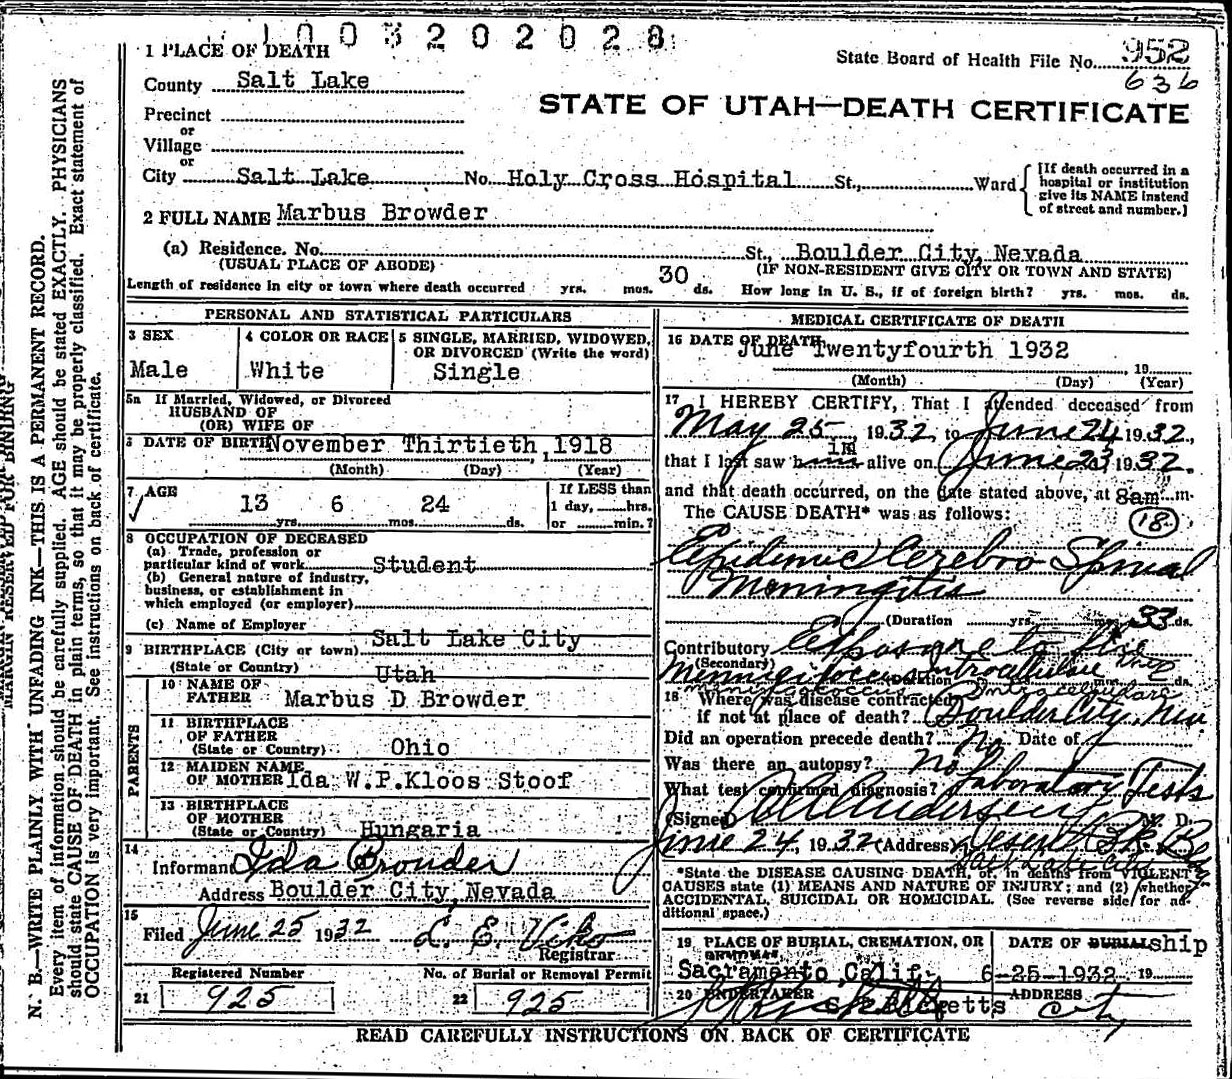 1003202028
1 PLACE OF DEATH
State Board of Health File No. 952
636
County Salt Lake
STATE OF UTAH—DEATH CERTIFICATE
Precinct
or
Village
or
City Salt Lake No. Holy Cross Hospital St., Ward
[If death occurred in a
hospital or institution
give its NAME instead
of street and number.]
2 FULL NAME Marbus Browder
(a) Residence. No. St., Boulder City, Nevada
(USUAL PLACE OF ABODE) (IF NON-RESIDENT GIVE CITY OR TOWN AND STATE)
Length of residence in city or town where death occurred yrs. mos. 30 ds. How long in U. S., if of foreign birth? yrs. mos. ds.
PERSONAL AND STATISTICAL PARTICULARS
3 SEX
Male
4 COLOR OR RACE
White
5 SINGLE, MARRIED, WIDOWED,
OR DIVORCED (Write the word)
Single
5a If Married, Widowed, or Divorced
HUSBAND OF
(OR) WIFE OF
DATE OF BIRTH November Thirtieth, 1918
(Month) (Day) (Year)
7 AGE
13 yrs. 6 mos. 24 ds.
If LESS than
1 day, hrs.
or min.?
8 OCCUPATION OF DECEASED
(a) Trade, profession or
particular kind of work Student
(b) General nature of industry,
business, or establishment in
which employed (or employer)
(c) Name of Employer
Salt Lake City
9 BIRTHPLACE (City or town)
(State or Country) Utah
PARENTS
10 NAME OF
FATHER Marbus D Browder
11 BIRTHPLACE
OF FATHER
(State or Country) Ohio
12 MAIDEN NAME
OF MOTHER Ida W.P.Kloos Stoof
13 BIRTHPLACE
OF MOTHER
(State or Country) Hungaria
14
Informant Ida Browder
Address Boulder City, Nevada
15
Filed June 25 1932 L. E. Viko
Registrar
Registered Number
21 925
No. of Burial or Removal Permit
22 925
MEDICAL CERTIFICATE OF DEATH
16 DATE OF DEATH
June Twentyfourth 1932
, 19
(Month) (Day) (Year)
17 I HEREBY CERTIFY, That I attended deceased from
May 25, 1932, to June 24 1932,
that I last saw him alive on June 23, 1932.
and that death occurred, on the date stated above, at 8am m.
The CAUSE DEATH* was as follows:
18
Epidemic Cerebro Spinal
Meningitis
(Duration yrs. mos. 33 ds.
Contributory Exposure to five
(Secondary)
18 Where was disease contracted
if not at place of death? Boulder City, Nev
Did an operation precede death? No Date of
Was there an autopsy? no
What test confirmed diagnosis? Laboratory Tests
(Signed) M. D.
June 24, 1932 (Address) Deseret Bk Bldg
Salt Lake City
*State the DISEASE CAUSING DEATH, or, in deaths from VIOLENT
CAUSES state (1) MEANS AND NATURE OF INJURY; and (2) whether
ACCIDENTAL, SUICIDAL OR HOMICIDAL. (See reverse side for ad-
ditional space.)
19 PLACE OF BURIAL, CREMATION, OR
Sacramento Calif.
DATE OF BURIAL ship
6-25-1932 19
20 UNDERTAKER
ADDRESS
City
READ CAREFULLY INSTRUCTIONS ON BACK OF CERTIFICATE
MARGIN RESERVED FOR BINDING
N. B.—WRITE PLAINLY WITH UNFADING INK—THIS IS A PERMANENT RECORD.
Every item of information should be carefully supplied. AGE should be stated EXACTLY. PHYSICIANS
should state CAUSE OF DEATH in plain terms, so that it may be properly classified. Exact statement of
OCCUPATION is very important. See instructions on back of certificate.